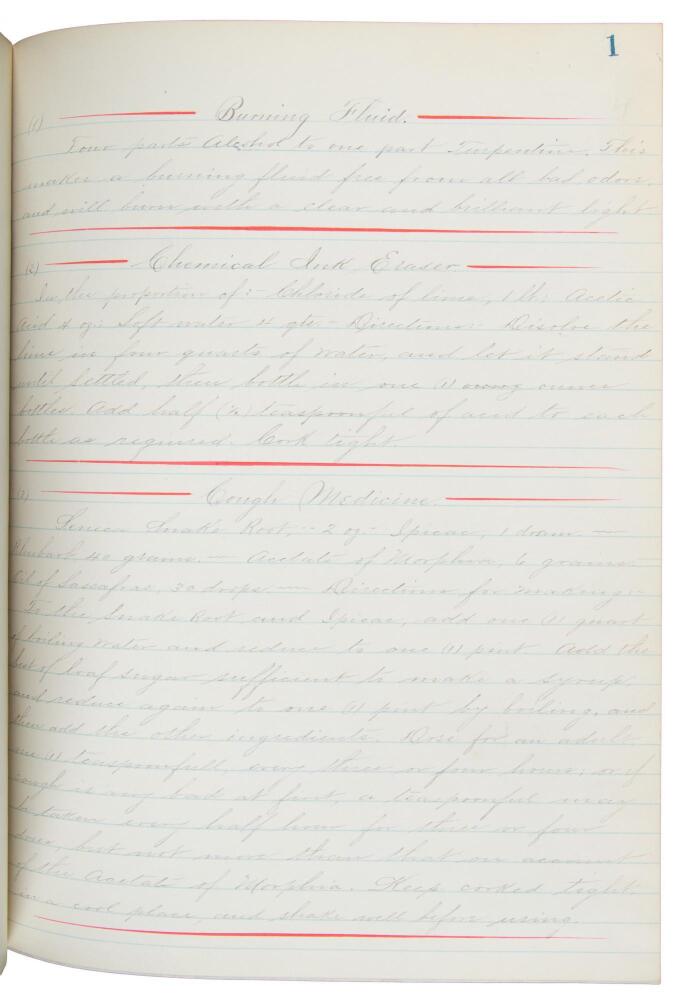 1
(1) Burning Fluid.
Four parts Alcohol to one part Turpentine. This
makes a burning fluid free from all bad odors,
and will burn with a clear and brilliant light
(2) Chemical Ink Eraser.
In the proportion of :- Chloride of lime, 1 lb; Acetic
Acid 4 oz; Soft water 4 qts - Directions:- Disolve the
lime in four quarts of water, and let it stand
until settled, then bottle in one (1) ounce
bottles. Add half (½) teaspoonful of acid to each
bottle as required. Cork tight.
(3) Cough Medicine.
Seneca Snake Root, - 2 oz - Ipicac, 1 dram -
Rhubarb, 40 grams. - Acetate of Morphia, 6 grains.
Oil of Sassafras, 30 drops. - Directions for making:-
To the Snake Root and Ipicac, add one (1) quart
of boiling water and reduce to one (1) pint. Add the
best of loaf sugar sufficient to make a syrup
and reduce again to one (1) pint by boiling, and
then add the other ingredients. Dose for an adult,
one (1) teaspoonfull, every three or four hours; or if
cough is very bad at first, a teaspoonful may
be taken every half hour for three or four
doses, but not more than that on account
of the Acetate of Morphia. Keep corked tight
in a cool place, and shake well before using.